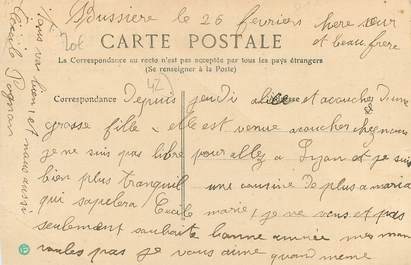 Bussiere le 26 fevriers chere sœur
et beau frere
20f
CARTE POSTALE
La Correspondance au recto n'est pas acceptée par tous les pays étrangers
(Se renseigner à la Poste)
42
Correspondance Depuis jeudi alice et acouchez d'une
grosse fille elle est venue acoucher chez nous
je ne suis pas libre pour allez a Lyon et je suis
bien plus tranquil une cousine de plus a maria
qui sapelera Cecile marie je ne vous et pas
seulement souhaite bonne année mes man
voules pas je vous aime quand meme
tous va bien et nous aussi
Cécile